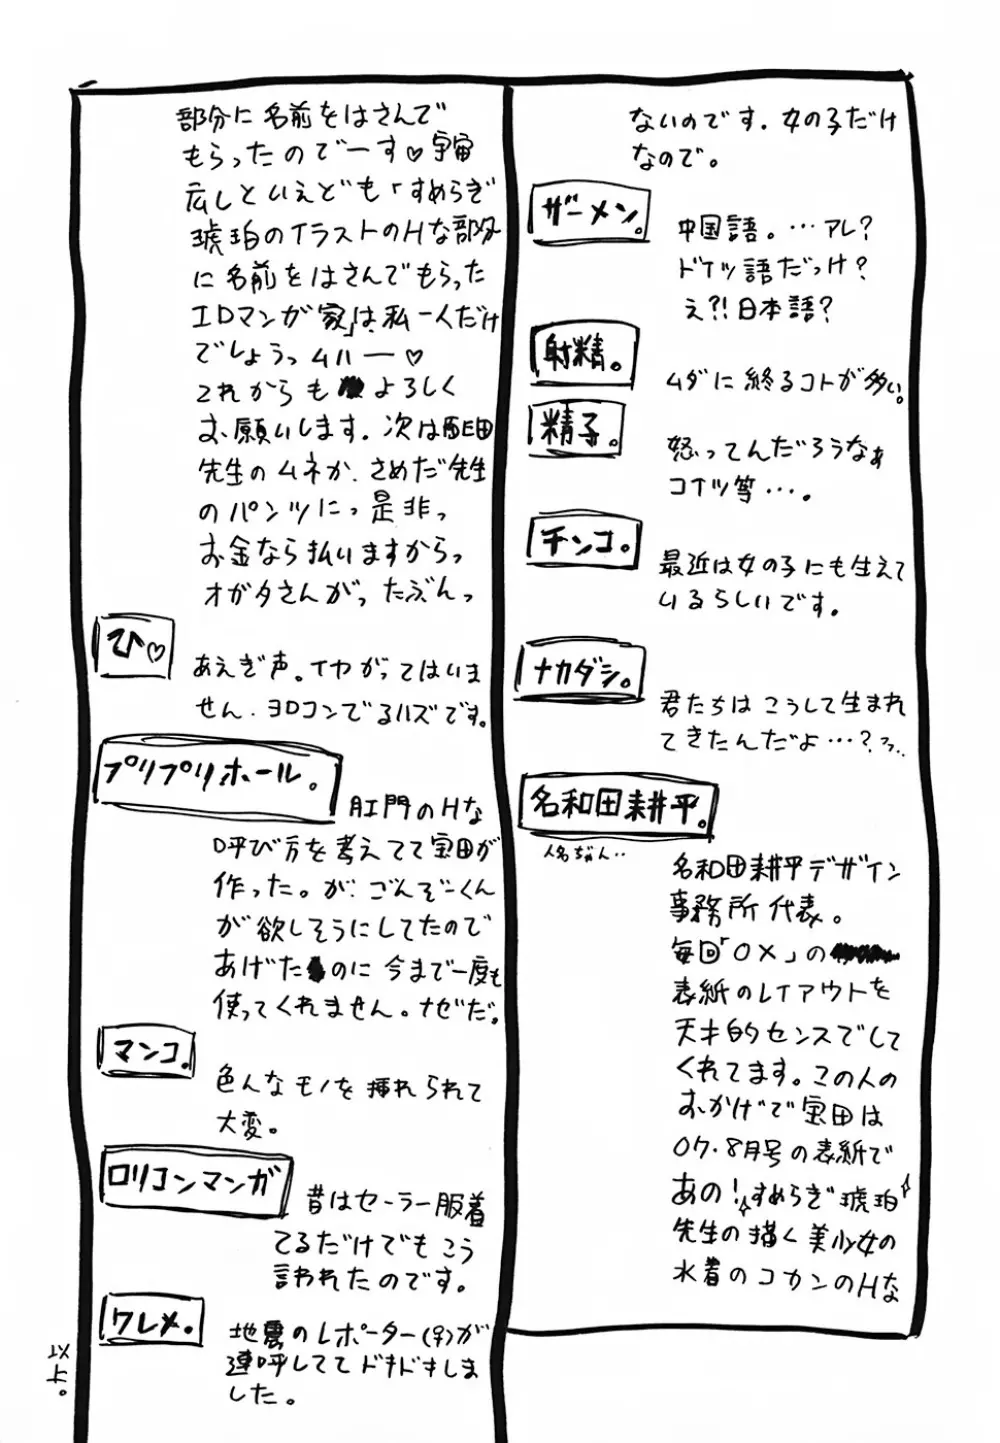 ないのです。女の子だけ
なので。
ザーメン。
中国語。…アレ?
ドイツ語だっけ?
え?!日本語?
射精。
ムダに終るコトが多い。
精子。
怒ってんだろうなぁ
コイツ等…。
チンコ。
最近は女の子にも生えて
いるらしいです。
ナカダシ。
君たちはこうして生まれ
てきたんだよ…?
名和田耕平。
人名ぢゃん‥
名和田耕平デザイン
事務所代表。
毎回「OX」の
表紙のレイアウトを
天才的センスでして
くれてます。この人の
おかげで宝田は
07.8月号の表紙で
あの!すめらぎ琥珀
先生の描く美少女の
水着のコカンのHな
部分に名前をはさんで
もらったのでーす♡宇宙
広しといえども「すめらぎ
琥珀のイラストのHな部分
に名前をはさんでもらった
エロマンガ家」は私一人だけ
でしょうっムハー♡
これからもよろしく
お願いします。次は
先生のムネか、さめだ先生
のパンツにっ是非っ
お金なら払いますからっ
オガタさんがったぶんっ
ひ♡
あえぎ声。イヤがってはいま
せん。ヨロコンでるハズです。
プリプリホール。
肛門のHな
呼び方を考えてて宝田が
作った。が、ごんぞーくん
が欲しそうにしてたので
あげたのに今まで一度も
使ってくれません。ナゼだ。
マンコ。
色んなモノを挿れられて
大変。
ロリコンマンガ
昔はセーラー服着
てるだけでもこう
言われたのです。
ワレメ。
地震のレポーター(♀)が
連呼しててドキドキしま
した。